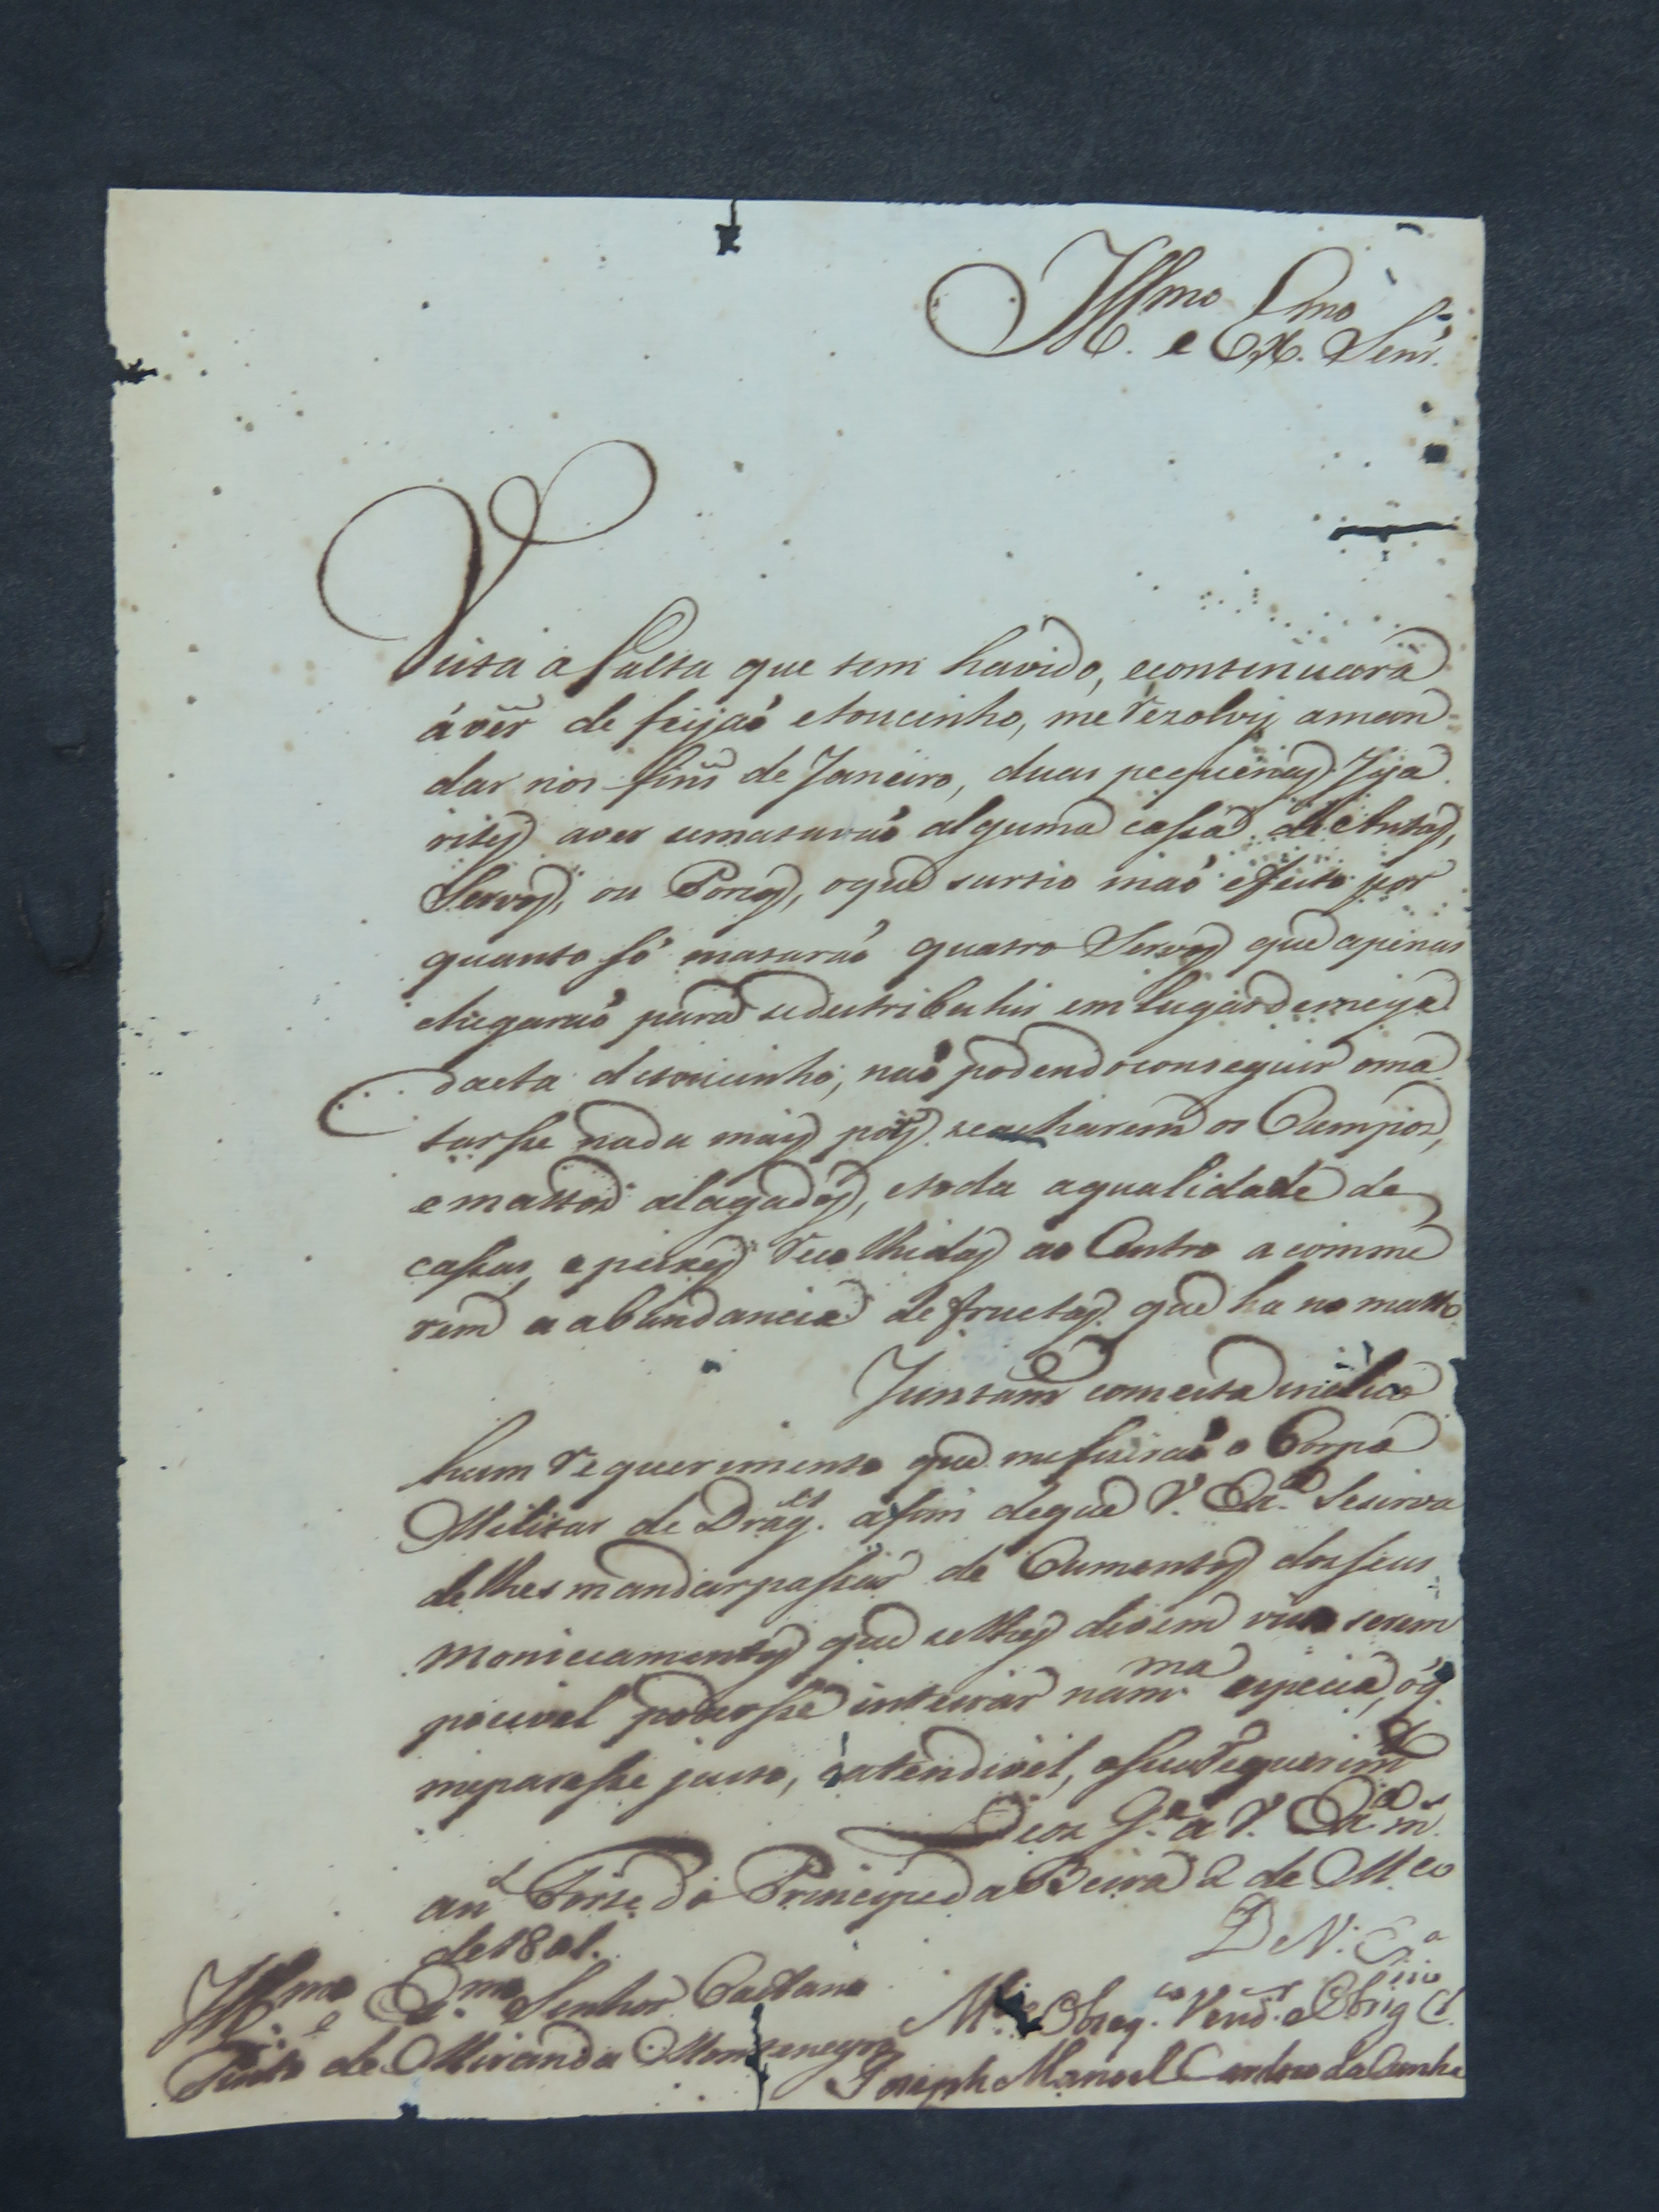 Illmo Exmo
e Senr.
Vista a falta que tem havido, econtinuará
áver de feijaó etoucinho, me rezolvy aman-
dar nos fins de Janeiro, duas pequenas Iga
rites aver sematavaó alguma cassa de Antas,
Servos, ou Porcos, oque surtio maó efeito por
quanto só mataraó quatro Servos que apenas
chegaraó para sedestribuhir em lugar demeya
dacta detoucinho, naó podendoconseguir oma
tarsse nada mais poes seacharem os Campos,
emattos alagados, etoda aqualidade de
cassas, epeixes recolhidas ao Centro acomme
rem aabundancia defructas que ha no matto.
Juntam.e comesta
hum requerimento que mefizeraó o Corpo
Militar de Drag.es afim deque V. Ex.a Sesirva
delhes mandarpassar de Cumentos dosseus
que selhes devem
pocivel podersse inteirar nam.ma especia, óq.
meparesse justo, eatendivel, oseurequerim.to
Deos G.e a V. Ex.a m.s
an.s Forte do Principe da Beira 2 de M.co
de 1801.
De V. Ex.a
Illmo e Ex.mo Senhor Caetano
Pinto de Miranda Montenegro
M.to Obzeq.co Vend.or eObrig.mo C.
Joseph Manoel Cardozo daCunha